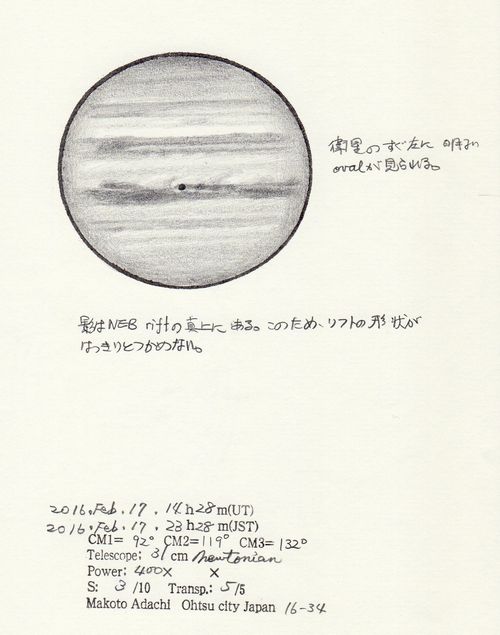 衛星のすぐ左に明るい
ovalが見られる。
影はNEB riftの真上にある。このため、リフトの形状が
はっきりとつかめない。
2016.Feb.17.14h28m(UT)
2016.Feb.17.23h28m(JST)
CM1= 92° CM2=119° CM3= 132°
Telescope: 31cm Newtonian
Power: 400X X
S: 3/10 Transp.: 5/5
Makoto Adachi Ohtsu city Japan 16-34